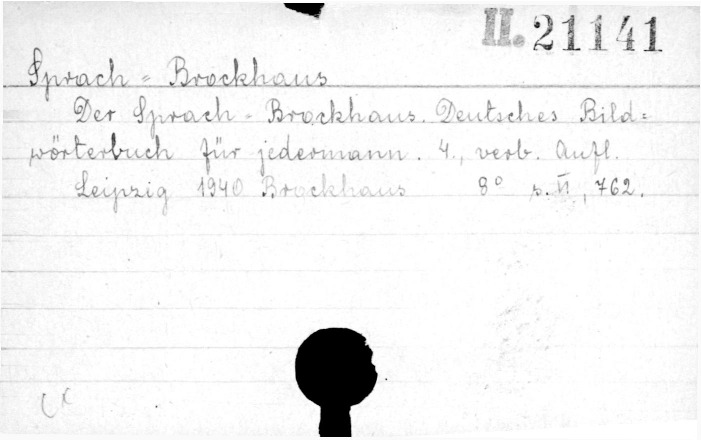 II. 21141
Sprach = Brockhaus
Der Sprach = Brockhaus. Deutsches Bild=
wörterbuch für jedermann. 4., verb. Aufl.
Leipzig 1940 Brockhaus 8° s. VI, 762.